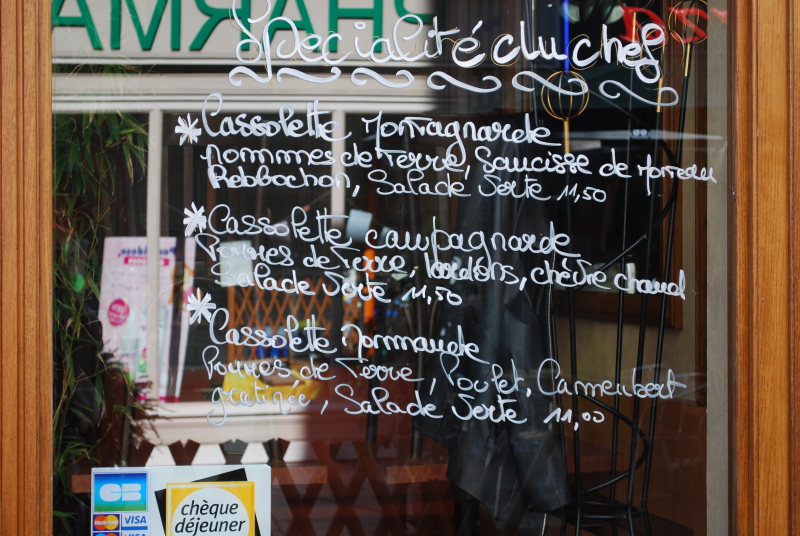 PHARMA
Spécialité du chef
* Cassolette Montagnarde
Pommes de Terre, Saucisse de Morteau
Rebbochon, Salade Verte 11,50
* Cassolette campagnarde
Pommes de Terre, lardons, chèvre chaud
Salade Verte 11,50
* Cassolette Normande
Pommes de Terre, Poulet, Camembert
gratinée, Salade Verte 11,00
CB
MasterCard VISA
VISA
chèque
déjeuner